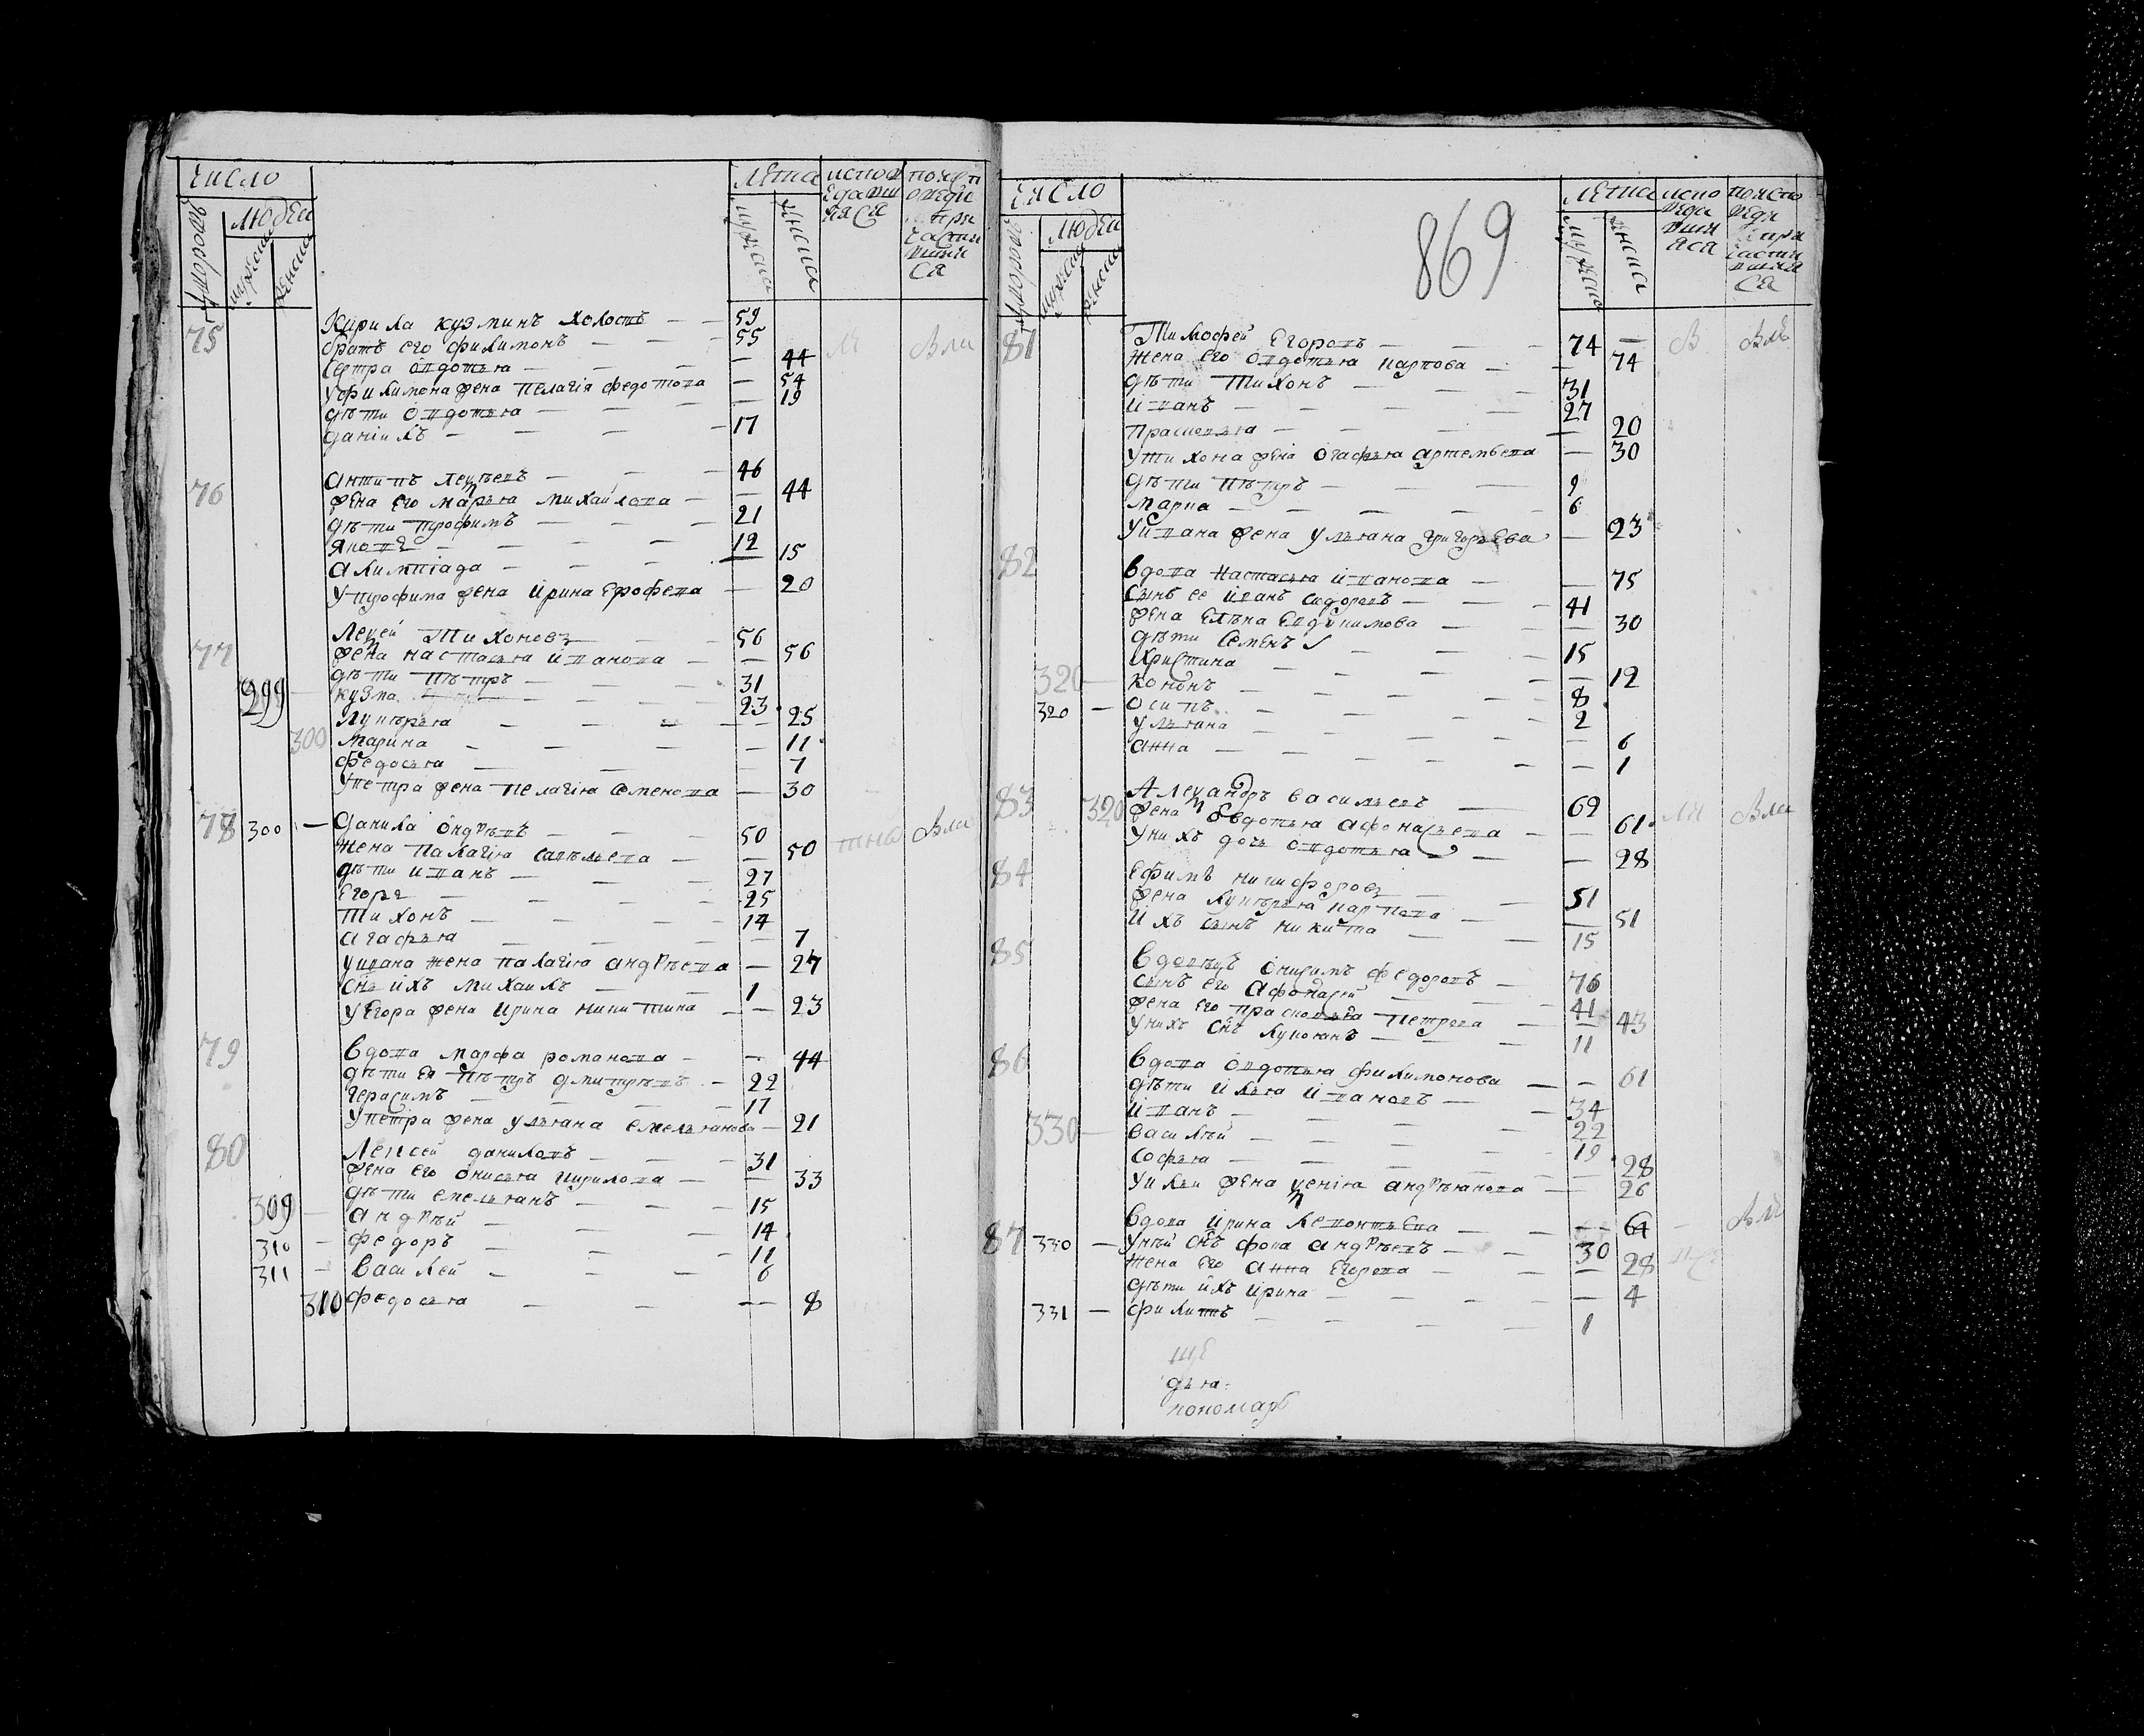 число
дворовъ
людей
мужеска
женска
лѣта
мужеска
женска
испов
едавши
яся
по исп
оведи
и при
части
вшии
ся
75 Кирила кузминъ холостъ — — 59
братъ его филимонъ — — 55
сестра овдотья — — — 44
у филимона жена пелагія федотова — 54
дѣти овдотья — — — 19
даніилъ — — — 17
76 антипъ леѯѣевъ — — 46
жена его марѳья михайлова — — 44
дѣти трофимъ — — 21
яковъ — — — 12
алимпіада — — — 15
у трофима жена ирина ерофеева — 20
77 Леѯей Тихоновъ — — 56
жена настасья иванова — — 56
дѣти пѣтръ — — 31
299 — кузма — — 23
лукерья — — — 25
300 марина — — — 11
федосья — — — 7
у петра жена пелагія семенова — 30
78 300 — данила ондрѣевъ — — 50
жена палагія савельева — — 50
дѣти иванъ — — 27
егоръ — — — 25
тихонъ — — — 14
агафья — — — 7
у ивана жена палагія андрѣева — 24
снъ ихъ михаилъ — — 1
у егора жена ирина никитина — — 23
79 вдова марфа романова — — 44
дѣти ея пѣтръ дмитрѣевъ — 22
герасимъ — — — 17
у петра жена ульяна емельянова — 21
80 Лексей даниловъ — — 31
жена его онисья кирилова — — 33
дѣти емельянъ — — 15
309 — андрѣй — — 14
310 — федоръ — — 11
311 — василей — — 6
310 федосья — — — 8
869
число
дворовъ
людей
мужеска
женска
лѣта
мужеска
женска
испо
веда
вшия
яся
по испо
веди
и при
части
вшия
ся
81 Тимофей Егоровъ — 74 —
жена его овдотья карпова — — 74
дѣти Тихонъ — — 31
иванъ — — — 27
прасковья — — — 20
у тихона жена огафья артемьева — 30
дѣти пѣтръ — — 9
марко — — — 6
у ивана жена ульяна григорьева — 23
82 вдова настасья иванова — — 75
сынъ ее иванъ сидоровъ — — 41
жена елѣна евдокимова — — 30
дѣти семенъ — — 15
христина — — — 12
320 — конónъ — — 8
320 — осипъ — — 2
ульяна — — — 6
анна — — — 1
83 Алеѯандръ васильевъ — 69
320 жена овдотья афонасьева — — 61
у нихъ дочь овдотья — — 28
84 Ефимъ никифоровъ — — 51
жена лукерья карпова — — 51
ихъ сынъ никита — — 15
85 вдовецъ онисимъ федоровъ — 76
сынъ его афонасей — — 41
жена его прасковья петрова — — 43
у нихъ снъ лукоянъ — — 11
86 вдова овдотья филимонова — — 61
дѣти илья ивановъ — — 34
иванъ — — — 22
330 — василѣй — — 19
софья — — — 28
у ильи жена ѯенія андрѣянова — 26
87 вдова ирина леонтьева — — 64
330 — у нѣй снъ фока андрѣевъ — — 30
жена его анна егорова — — 28
дѣти ихъ ирина — — — 4
331 — филипъ — — — 1
дья:
пономарь